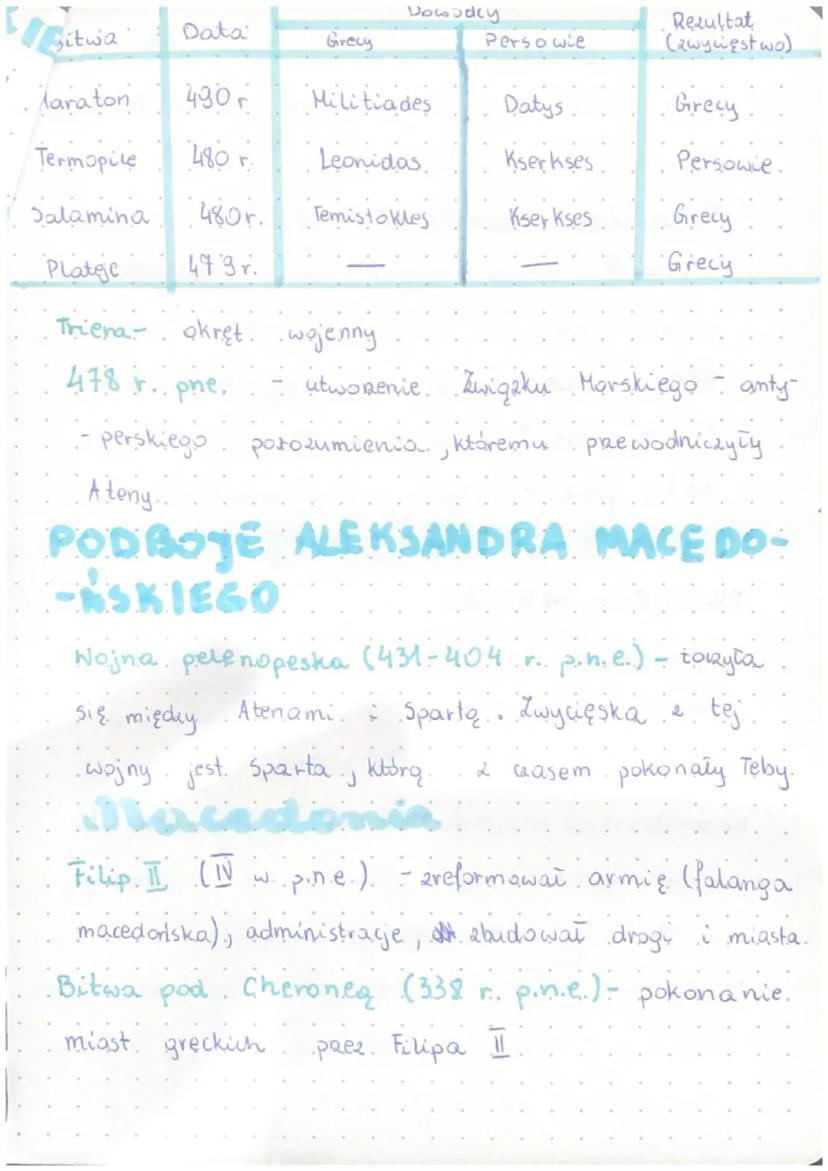 IE
Dowódcy
Bitwa Data Grecy Persowie Rezultat (zwycięstwo)
Maraton 490 r. Militiades Datys Grecy
Termopile 480 r. Leonidas Kserkses Persowie
Salamina 480 r. Temistokles Kserkses Grecy
Plateje 479 r. — — Grecy
Triera - okręt wojenny
478 r. pne. - utworzenie Związku Morskiego - anty-
- perskiego porozumienia, któremu przewodniczyły
Ateny.
PODBOJE ALEKSANDRA MACEDO-
-ŃSKIEGO
Wojna pelenopeska (431-404 r. p.n.e.) - toczyła
się między Atenami i Spartą. Zwycięska z tej
wojny jest Sparta, którą z czasem pokonały Teby.
Macedonia
Filip II (IV w p.n.e.) - zreformował armię (falanga
macedońska), administracje, zbudował drogi i miasta.
Bitwa pod Cheroneą (338 r. p.n.e.) - pokonanie
miast greckich przez Filipa II